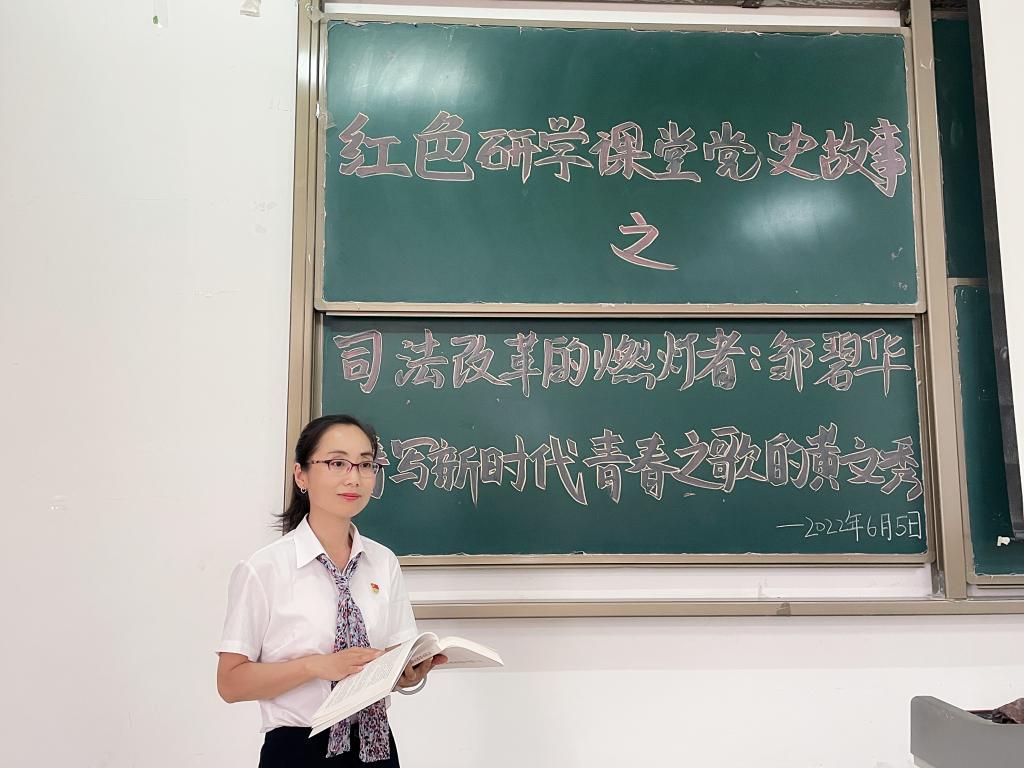 红色研学课堂党史故事
之
司法改革的燃灯者:邹碧华
写新时代青春之歌的黄文秀
—2022年6月5日